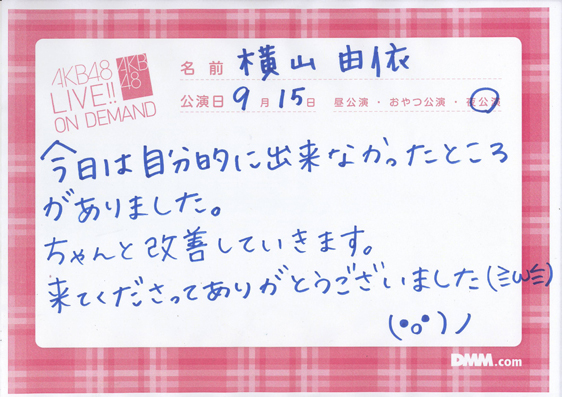 AKB48
LIVE!!
ON DEMAND
AKB
48
名前 横山由依
公演日 9月15日 昼公演・おやつ公演・夜公演
今日は自分的に出来なかったところ
がありました。
ちゃんと改善していきます。
来てくださってありがとうございました(≧ω≦)
(•o•)ノ
DMM.com